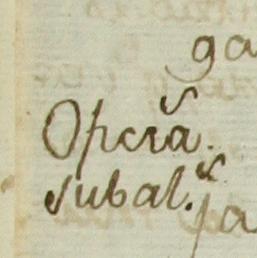 ga
Opcr̃a.
subal.
pa